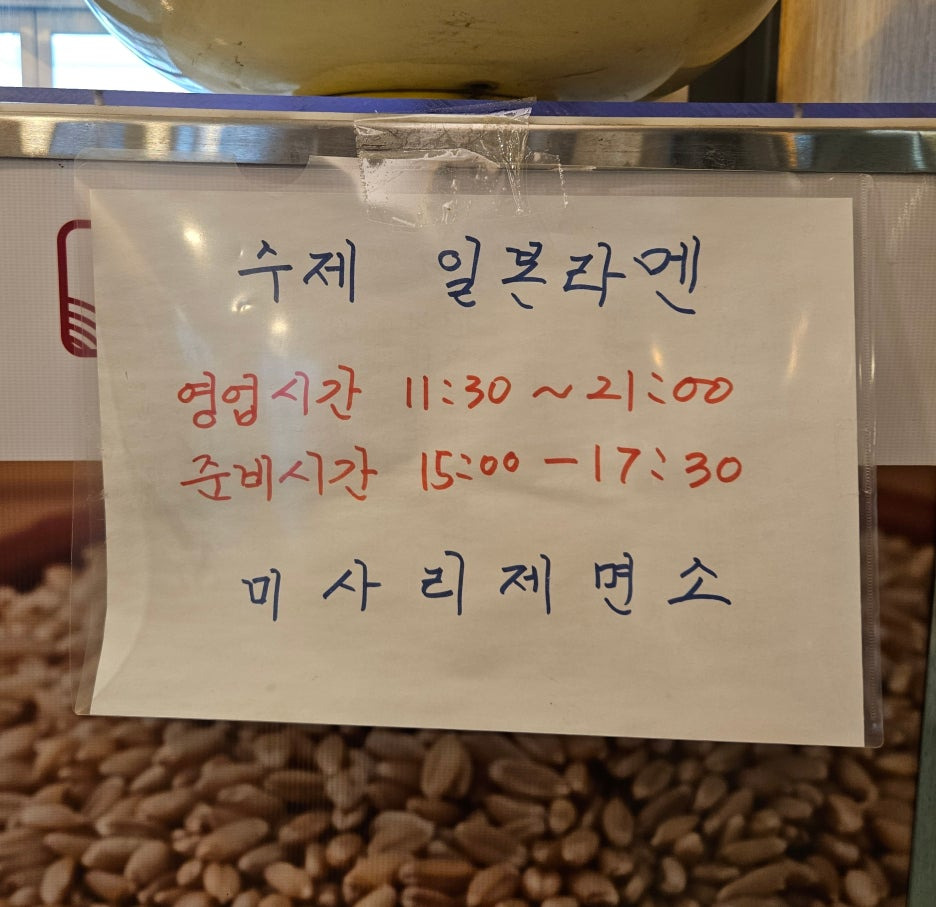 수제 일본라멘
영업시간 11:30 ~ 21:00
준비시간 15:00 - 17:30
미사리제면소